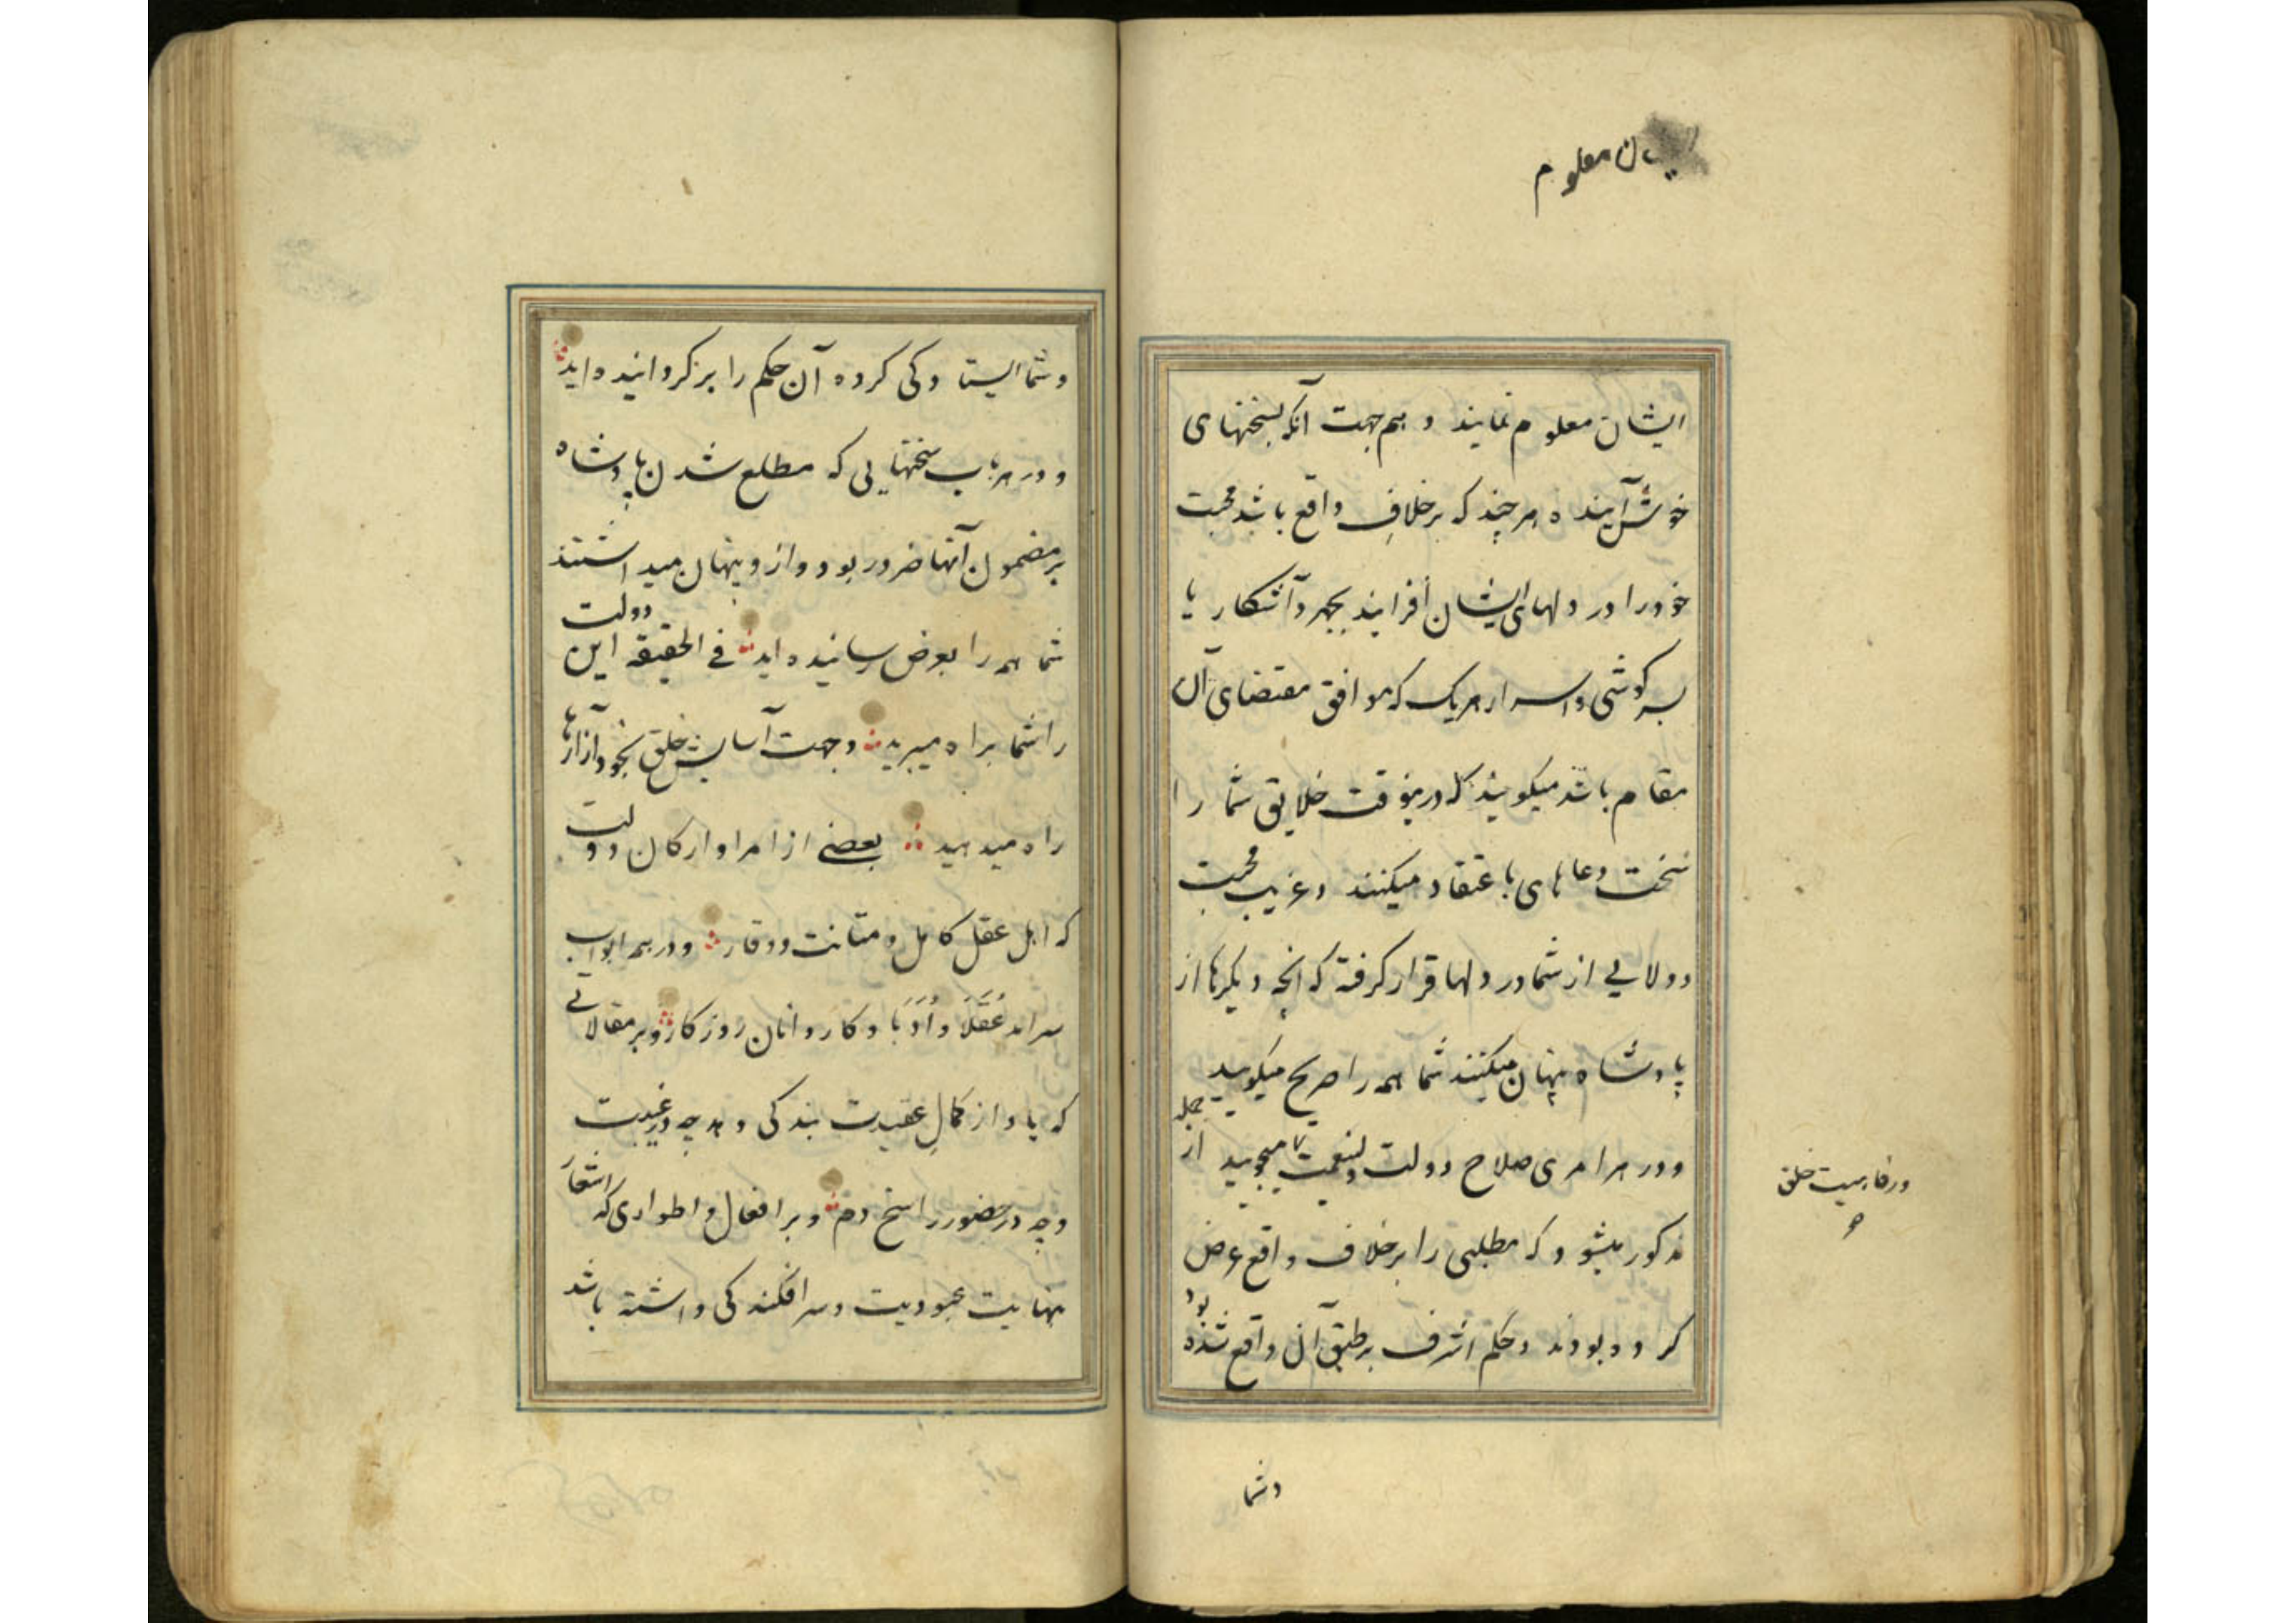 ایشان معلوم
ایشان معلوم نمایند و هم جهت آنکه بسخنهای
خوش آینده هر چند که بر خلافِ واقع باشد محبت
خود را در دلهای ایشان افزایند بجهر و آشکار یا
بسرکوشی و اسرار هریک که موافق مقتضای آن
مقام باشد میکویند که درینوقت خلایق شما را
سخت دعا های با عتقاد میکنند و غریب محبت
و ولایی از شما در دلها قرار کرفته که آنچه دیکرها از
پادشاه پنهان میکنند شما همه را صریح میکویید
و در هر امری صلاح دولت ولینعمت میجویید از جمله
و رفاهیت خلق
مذکور میشود که مطلبی را بر خلاف واقع عرض
کرده بودند و حکم اشرف بر طبق آن واقع شده بود
و شما
و شما ایستادکی کرده آن حکم را برکردانیده اید
و در هر باب سخنهایی که مطلع شدن پادشاه
بر مضمون آنها ضرور بود و ازو پنهان میداشتند
شما همه را بعرض رسانیده اید في الحقیقه این دولت
را شما براه میبرید و جهت آسایش خلق بخود آزارها
راه میدهید بعضی از امرا و ارکان دولت
که اهل عقل کامل و متانت و وقار و در همه ابواب
سرامد عُقَلَا و اُدَبَا و کاردانان روزکار و بر مقالاتی
که یاد از کمالِ عقیدت بندکی دهد چه در غیبت
و چه در حضور راسخ دم و بر افعال و اطواری که اشعار
بنهایت عبودیت و سرافکندکی داشته باشد